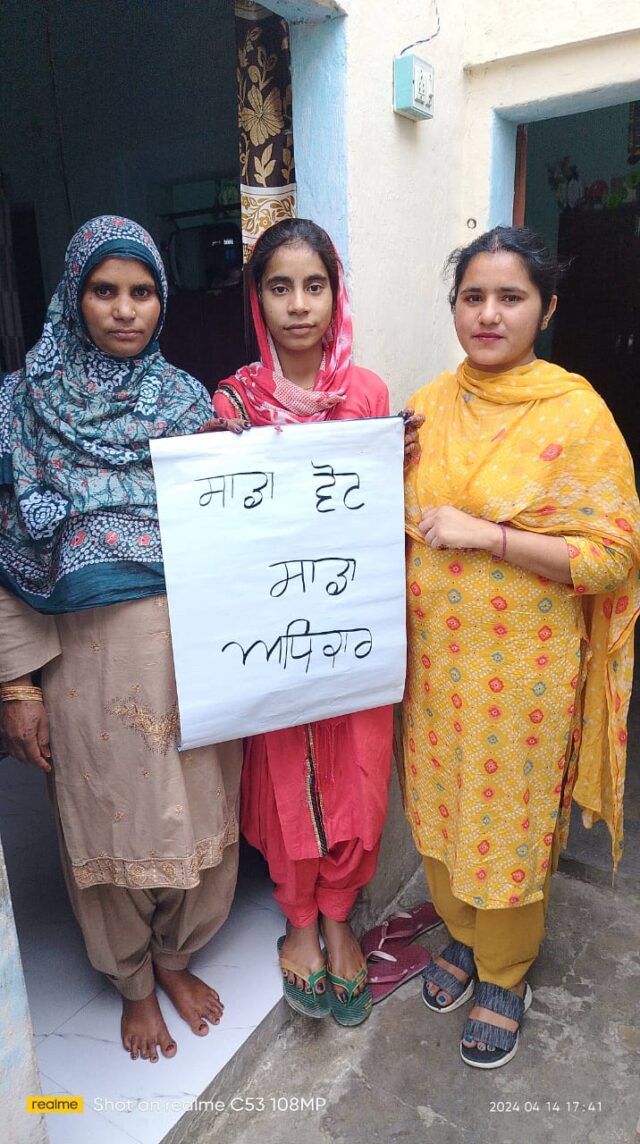 ਸਾਡਾ ਵੋਟ
ਸਾਡਾ
ਅਧਿਕਾਰ
realme Shot on realme C53 108MP
2024 04 14 17:41